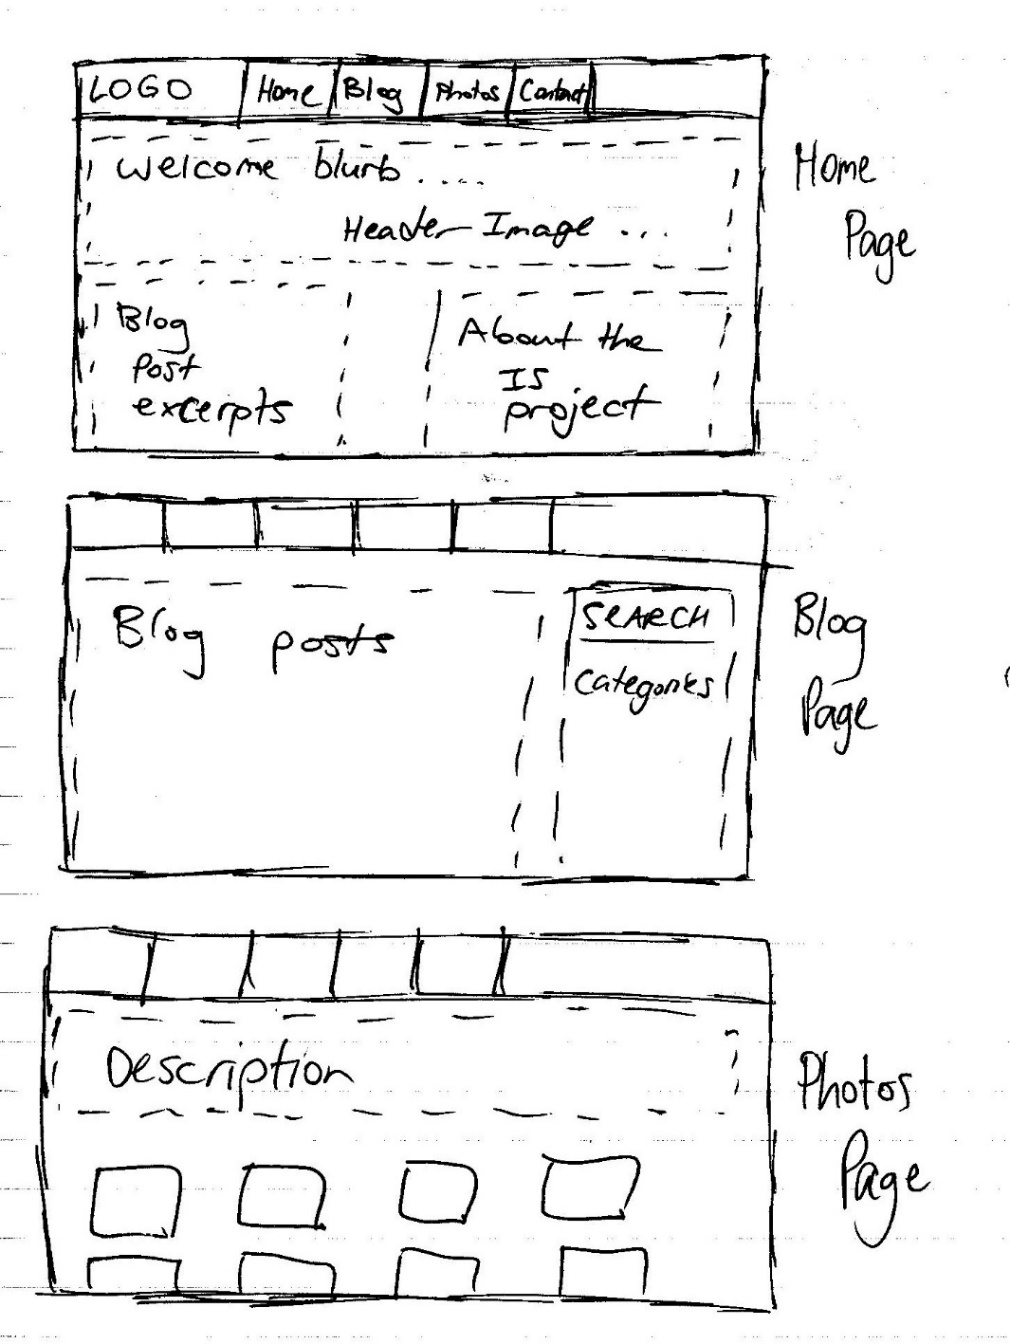 LOGO Home Blog Photos Contact
Welcome blurb ....
Header Image ...
Home
Page
Blog
Post
excerpts
About the
IS
project
Blog posts
SEARCH
Categories
Blog
Page
Description
Photos
Page